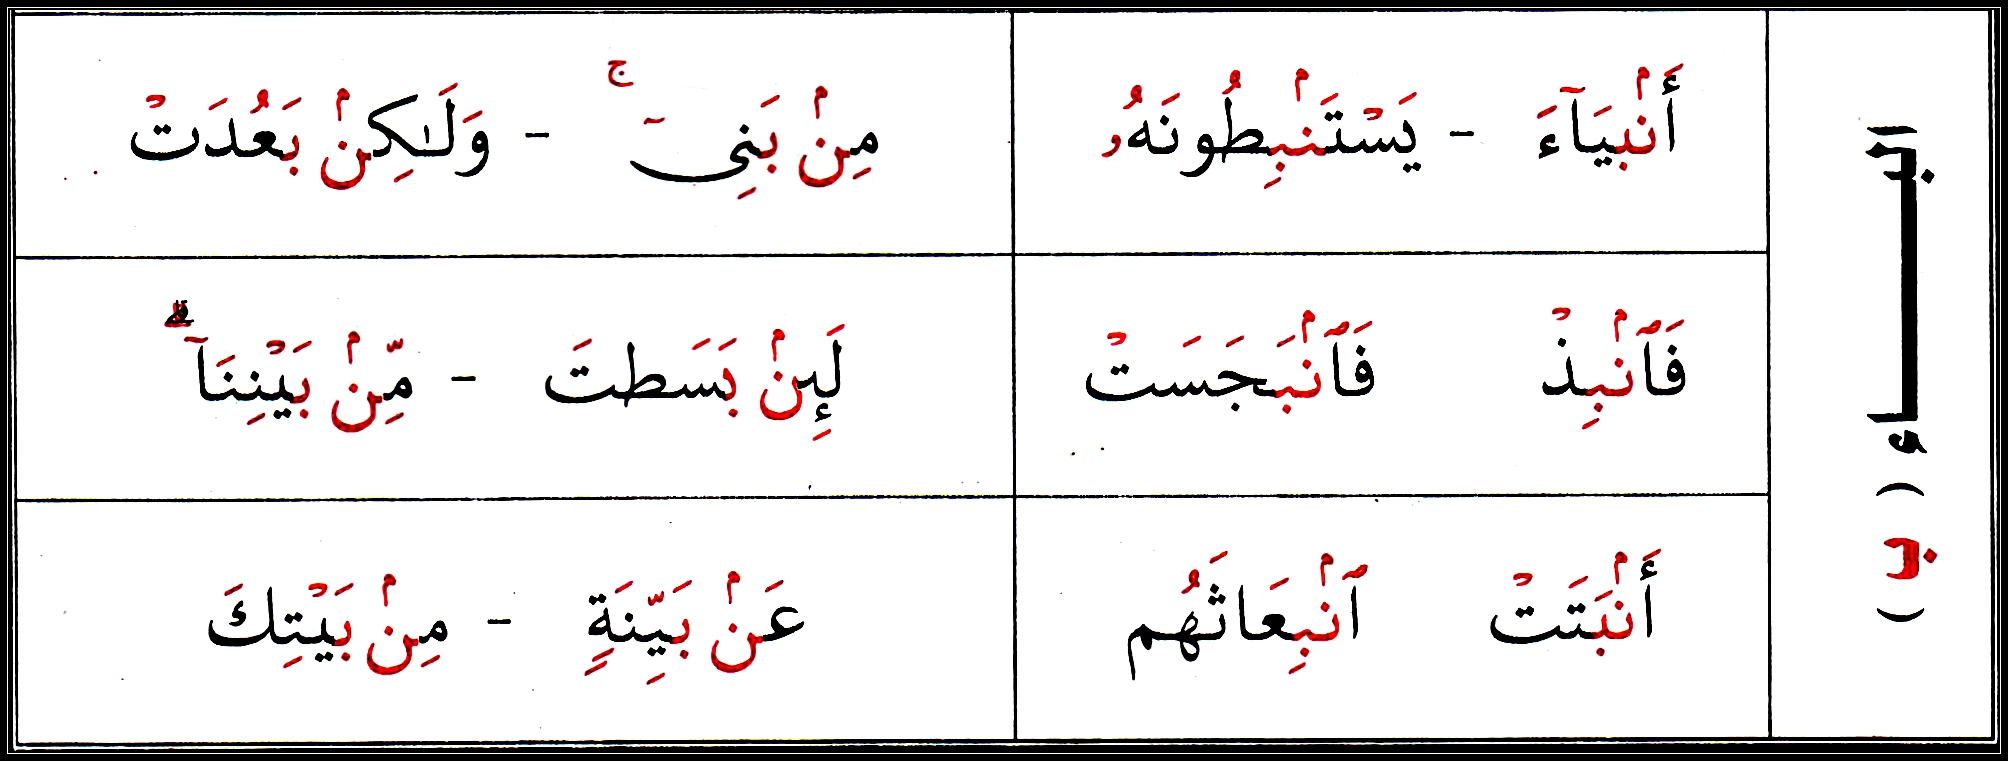 البـــاء ( ب )
أَنۢبِيَآءَ - يَسْتَنۢبِطُونَهُۥ
مِنۢ بَنِىٓ ۚ - وَلَـٰكِنۢ بَعُدَتْ
فَٱنۢبِذْ فَٱنۢبَجَسَتْ
لَئِنۢ بَسَطتَ - مِّنۢ بَيْنِنَآ ۗ
أَنۢبَتَتْ ٱنۢبِعَاثَهُم
عَنۢ بَيِّنَةٍ - مِنۢ بَيْتِكَ